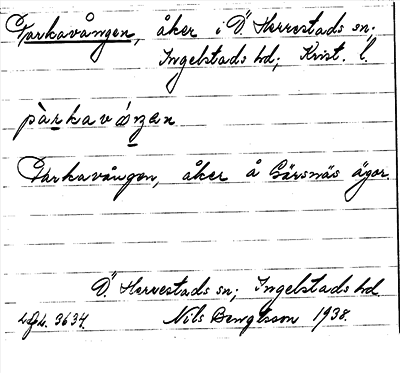 Parkavången, åker i Ö. Herrestads sn;
Ingelstads hd; Krist. l.
pàrkavóŋən
Parkavången, åker å Gärsnäs ägor.
Ö. Herrestads sn; Ingelstads hd.
3634. Nils Bengtsson 1938.